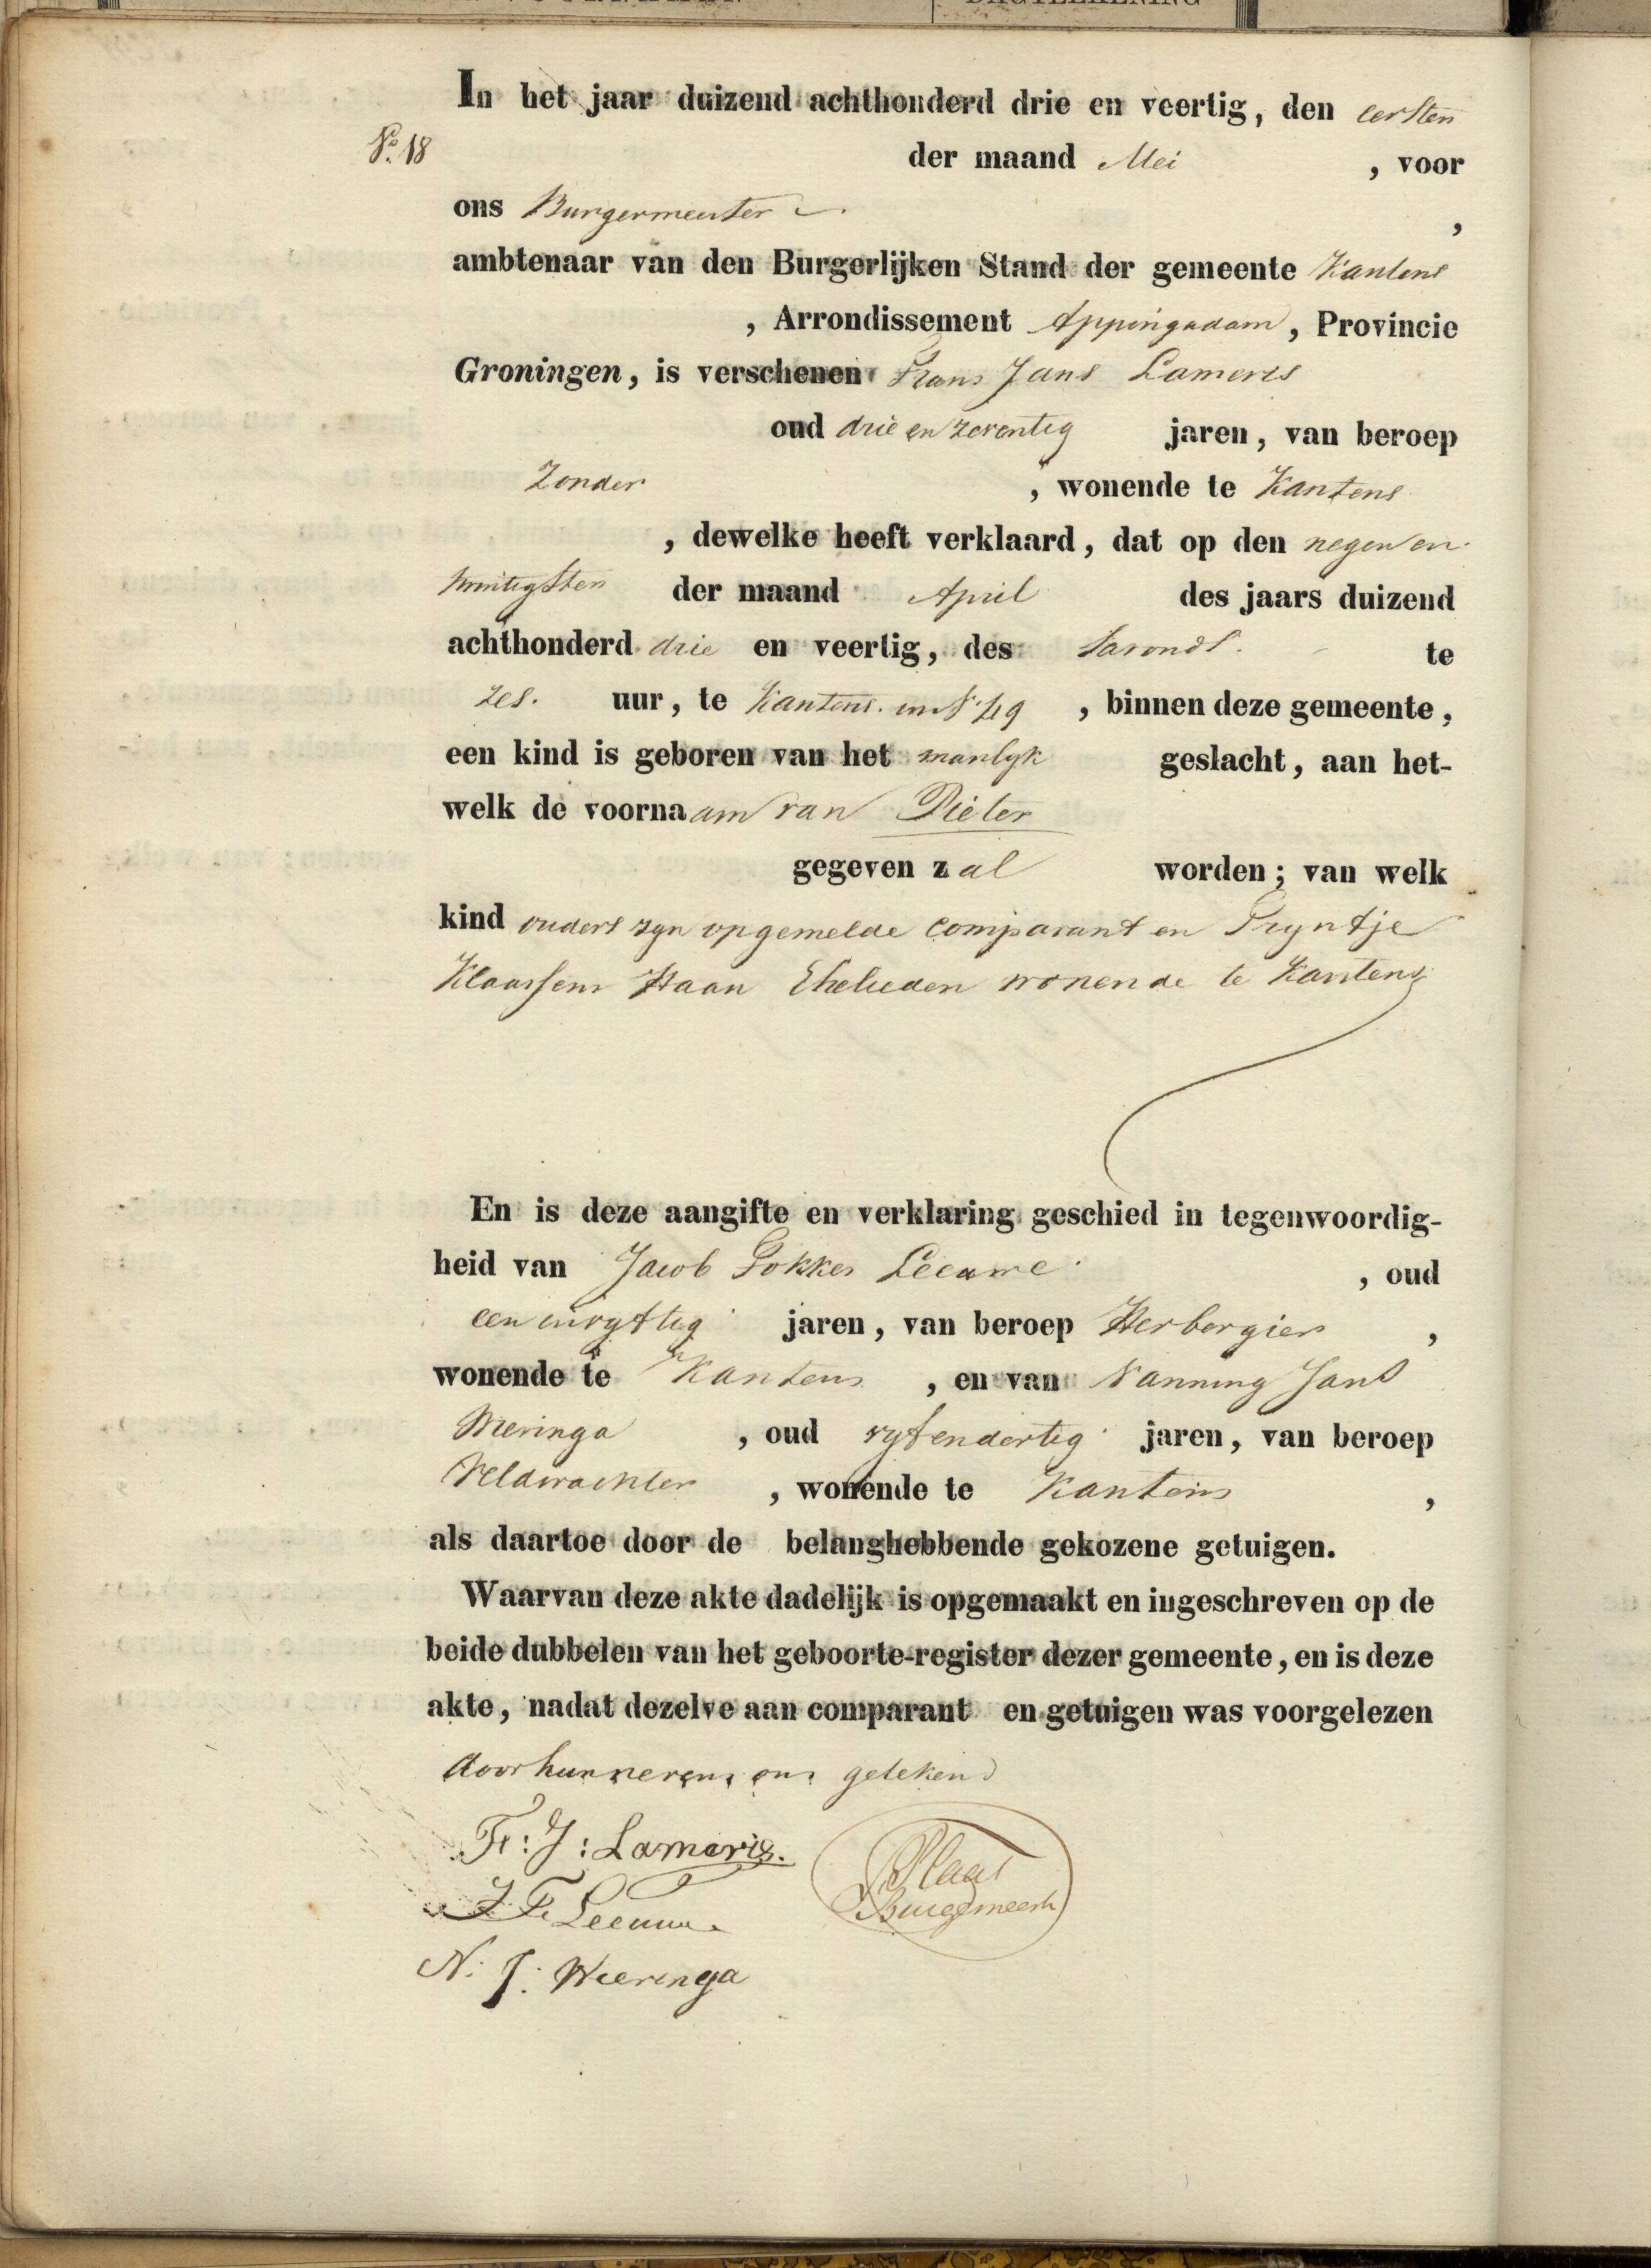 In het jaar duizend achthonderd drie en veertig, den eersten
No. 18
der maand Mei , voor
ons Burgermeester ,
ambtenaar van den Burgerlijken Stand der gemeente Kantens
, Arrondissement Appingadam, Provincie
Groningen, is verschenen Frans Jans Lameris
oud drie en zeventig jaren, van beroep
Zonder , wonende te Kantens
, dewelke heeft verklaard, dat op den negen en
twintigsten der maand April des jaars duizend
achthonderd drie en veertig, des savonds te
zes. uur, te Kantens in No 49 , binnen deze gemeente,
een kind is geboren van het manlyk geslacht, aan het-
welk de voornaam van Pieter
gegeven zal worden; van welk
kind ouders zyn opgemelde comparant en Tryntje
Klaassens Haan Ehelieden wonende te Kantens
En is deze aangifte en verklaring geschied in tegenwoordig-
heid van Jacob Fokkes Leeuwe , oud
een en vyftig jaren, van beroep Herbergier ,
wonende te Kantens , en van Nanning Jans
Wieringa , oud vyfendertig jaren, van beroep
Veldwachter , wonende te Kantens ,
als daartoe door de belanghebbende gekozene getuigen.
Waarvan deze akte dadelijk is opgemaakt en ingeschreven op de
beide dubbelen van het geboorte-register dezer gemeente, en is deze
akte, nadat dezelve aan comparant en getuigen was voorgelezen
door hun nevens ons getekend
Fr: J: Lameris.
J F Leeuwe
N: J: Wieringa
Plaat
Burgemeester